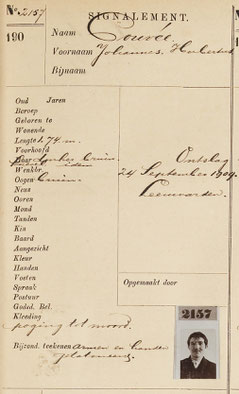 No. 2157
SIGNALEMENT.
190
Naam Couvee
Voornaam Johannes Hubertus
Bijnaam
Oud Jaren
Beroep
Geboren te
Wonende
Lengte 1.74 m.
Voorhoofd
Haar donker bruin
idem
Wenkbr.
Oogen bruin
Neus
Ooren
Mond
Tanden
Kin
Baard
Aangezicht
Kleur
Handen
Voeten
Spraak
Postuur
Godsd. Bel.
Kleeding
poging tot moord.
Bijzond. teekenen armen en handen
Ontslag
24 September 1909
Leeuwarden.
Opgemaakt door
2157